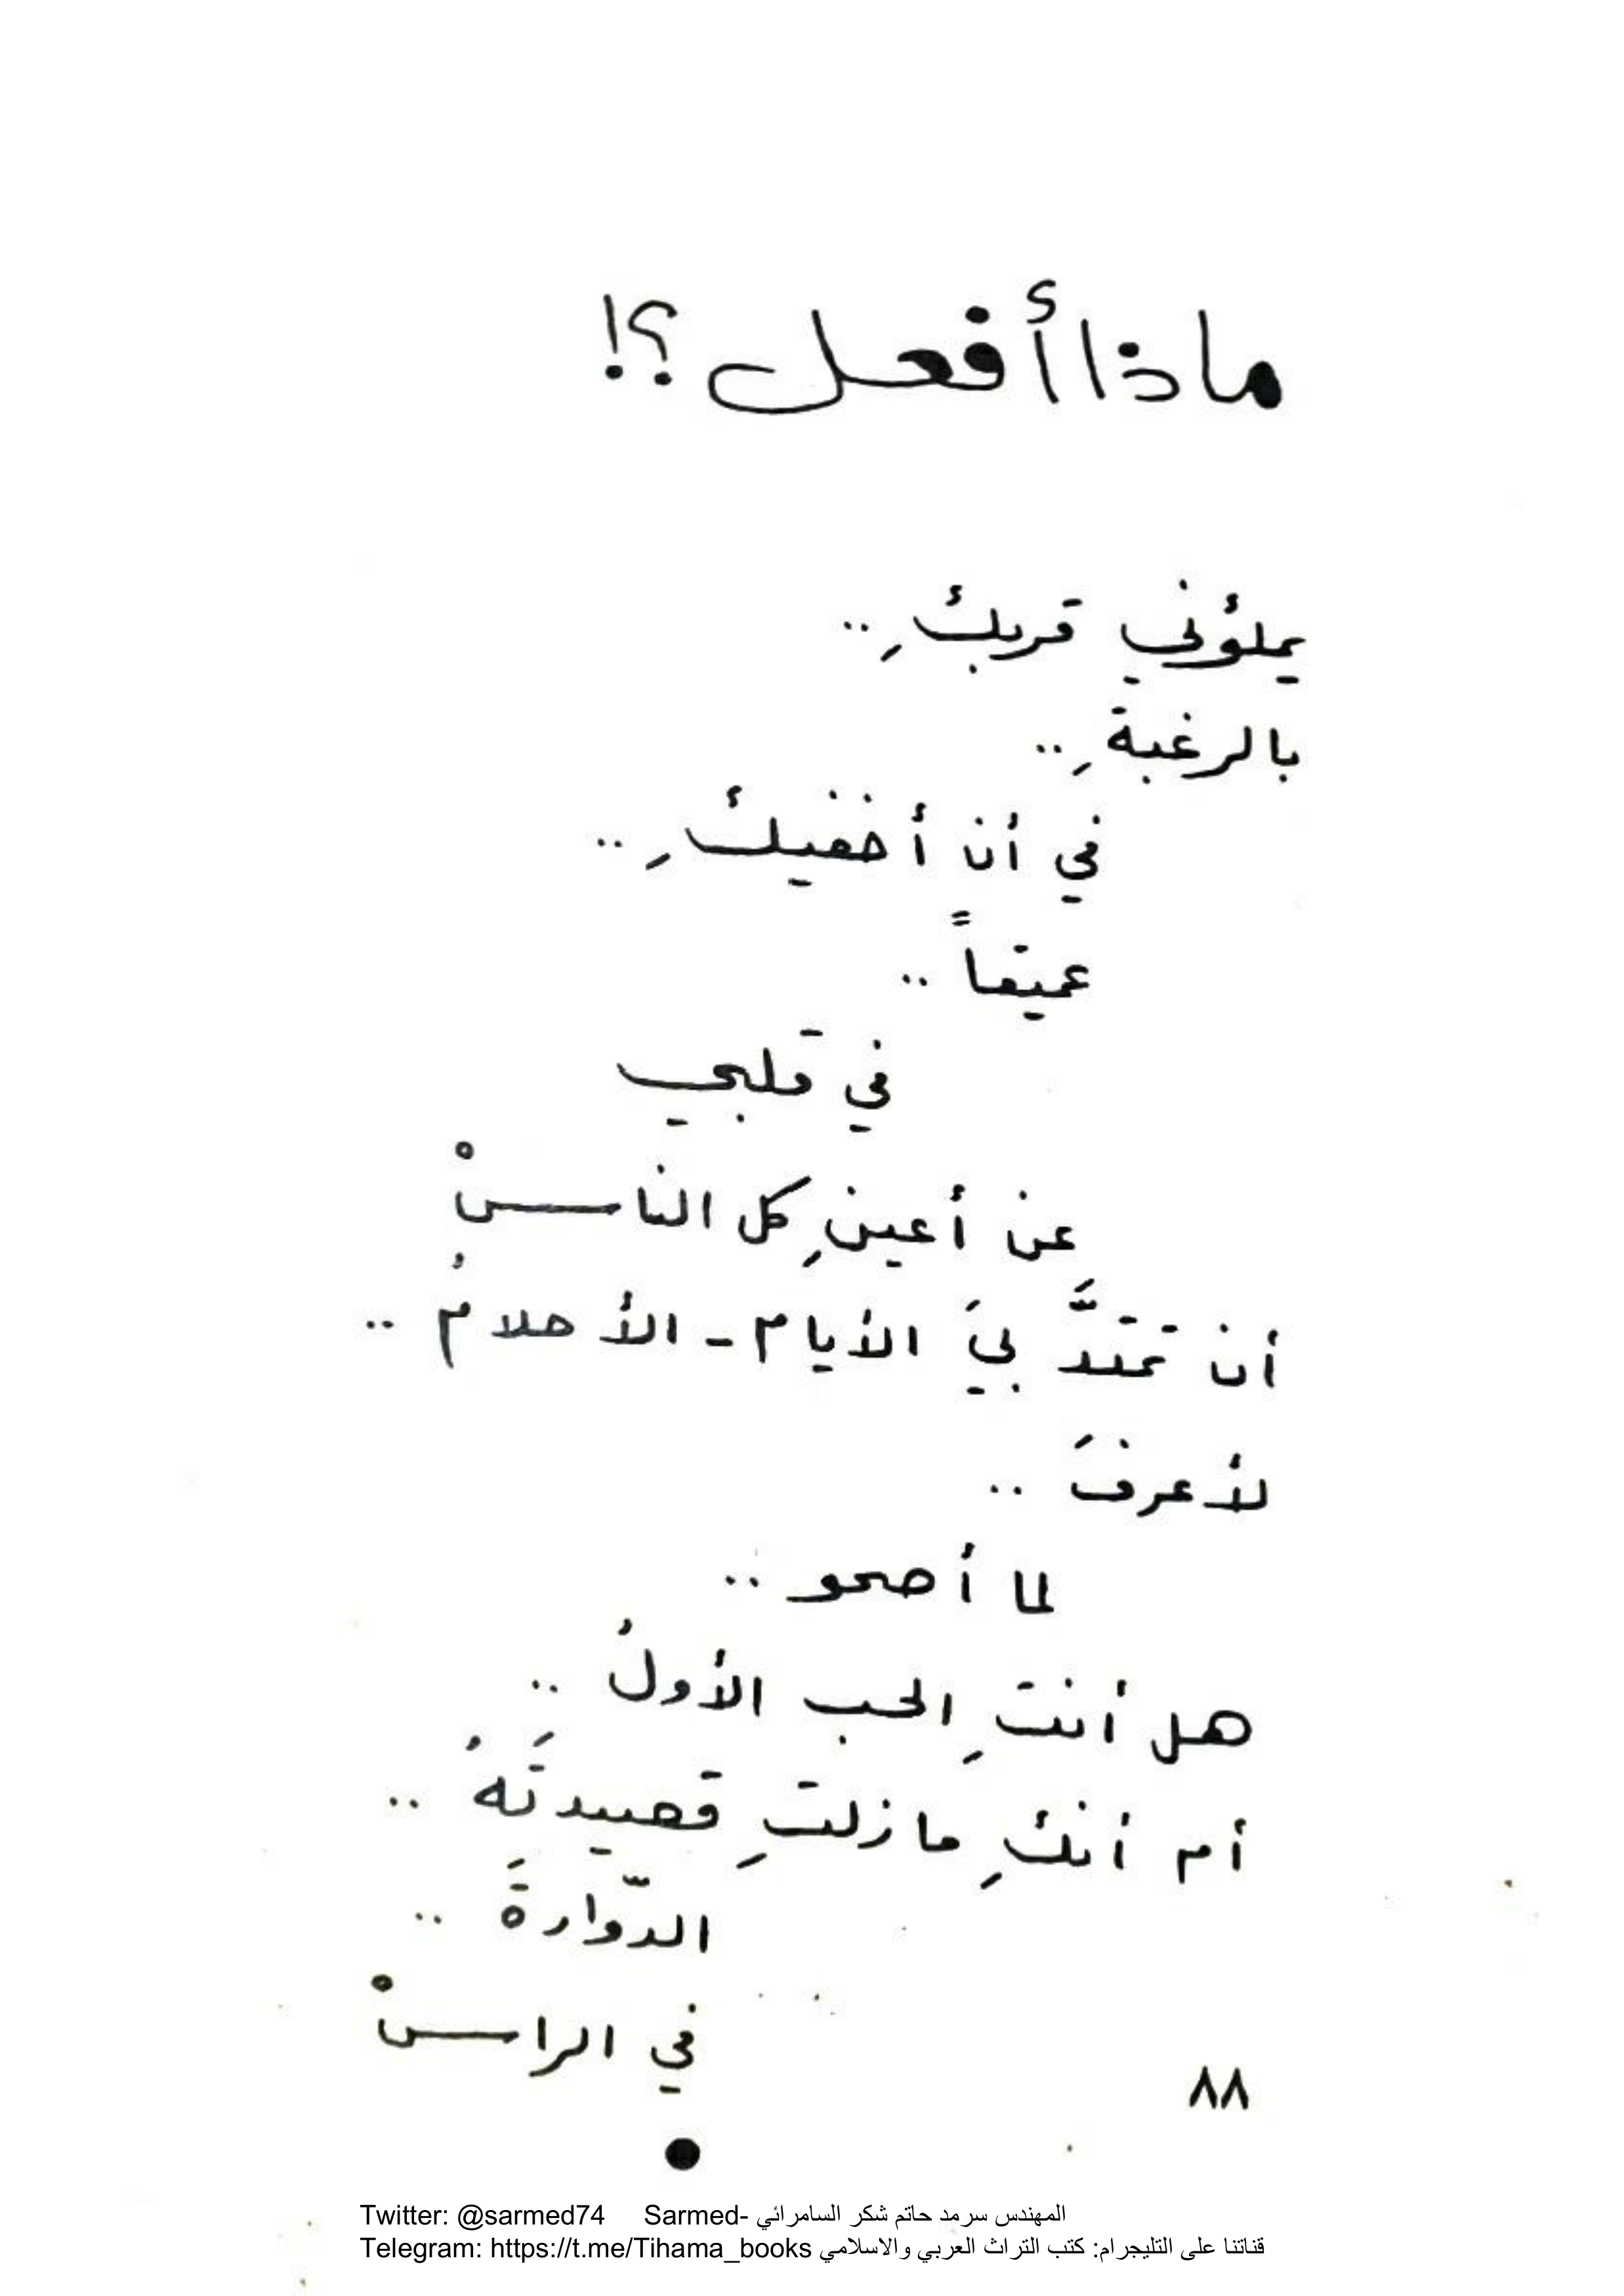 ماذا أفعل ؟!
يملؤني قربكِ ..
بالرغبةِ ..
في أن أخفيكِ ..
عميقاً ..
في قلبي
عن أعينِ كل الناسْ
أن تمتدَّ بيَ الأيام - الأحلامُ ..
لأعرفَ ..
لما أصحو ..
هل أنتِ الحب الأولُ ..
أم أنكِ مازلتِ قصيدتَهُ ..
الدّوارةَ ..
في الراسْ
٨٨
Twitter: @sarmed74 Sarmed- المهندس سرمد حاتم شكر السامرائي
Telegram: https://t.me/Tihama_books قناتنا على التليجرام: كتب التراث العربي والاسلامي